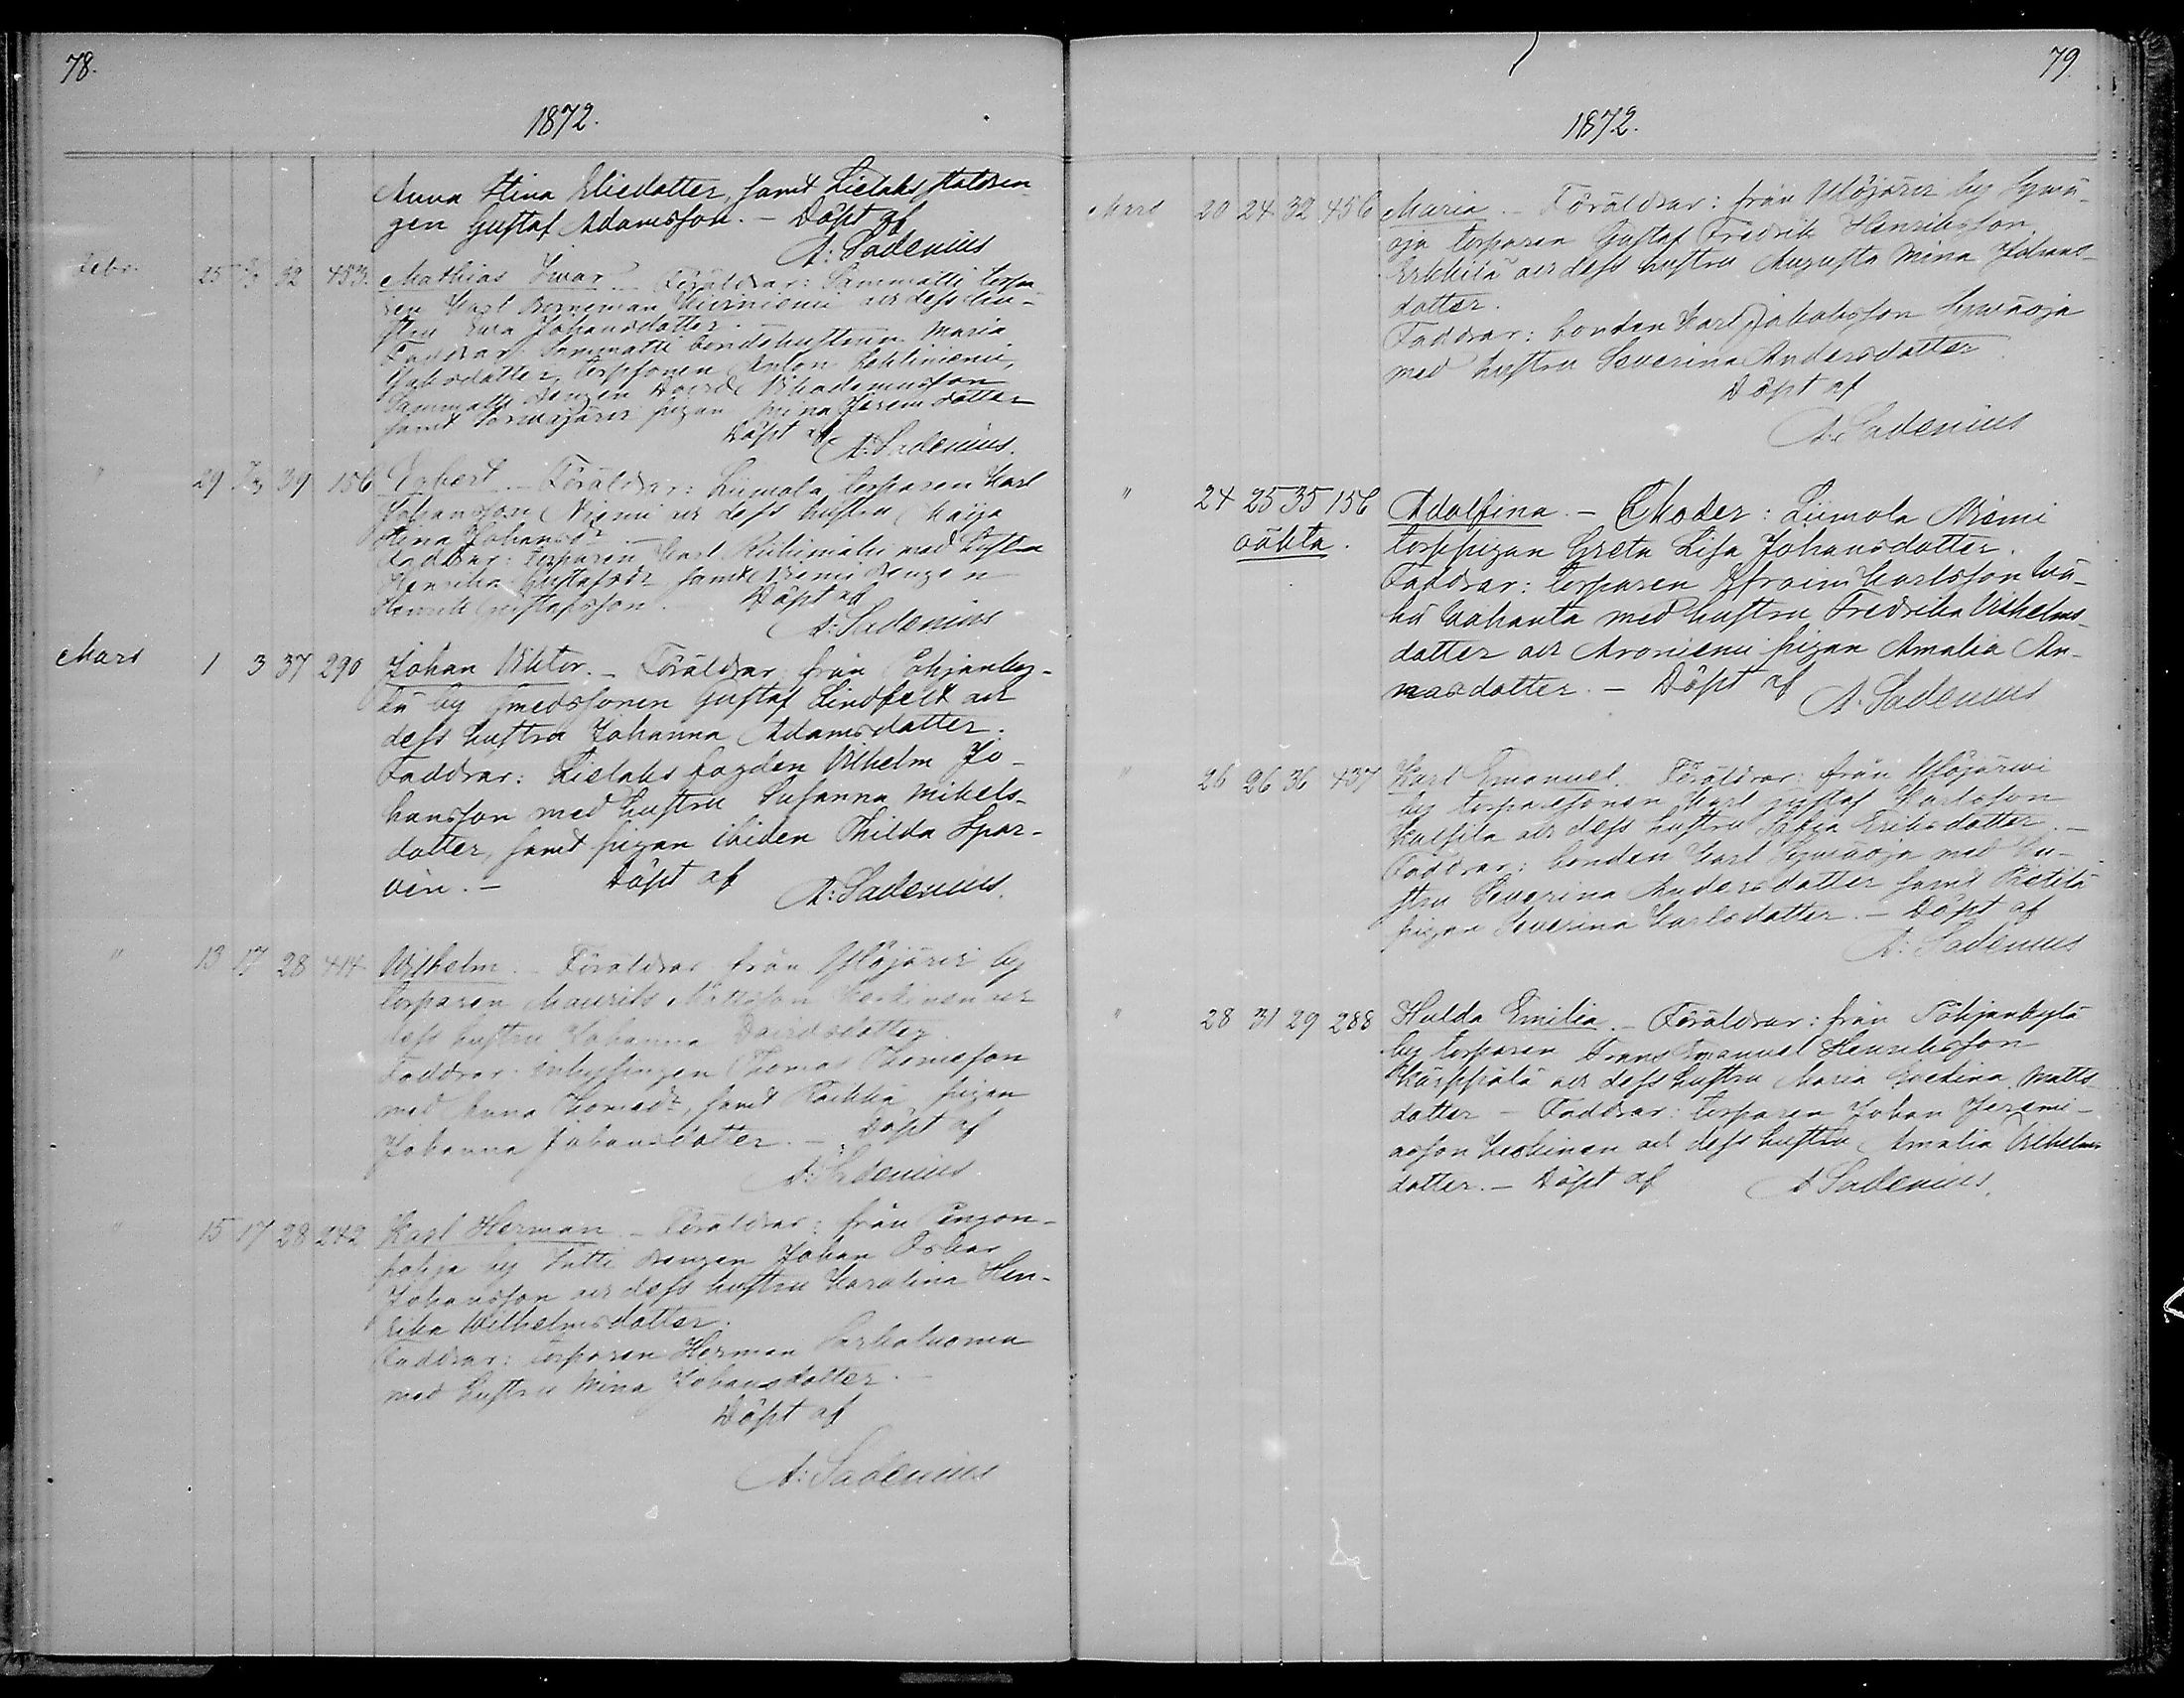 78.
1872.
Anna Stina Eliedotter, samt Lielaks statdren-
gen Gustaf Adamsson. - Döpt af
A: Sadenius
Febr. 25 32 453. Mathias Iwar. - Föräldrar: Sammatti torpa-
ren Karl Kiviniemi och dess hu-
stru Eva Johansdotter.
Faddrar: Sammatti bondehustrun Maria
Jakobsdotter, torpsonen Anton
Sammatti drengen David Nikodemusson
samt pigan Mina Jeremidotter
Döpt af A: Sadenius.
" 29 39 156 Egbert. - Föräldrar: Liimola torparen Karl
Johansson Niemi och dess hustru Maija
Stina Johansdr. -
Faddrar: torparen Karl Riihimäki med hustru
Henrika Gustafsdr samt Niemi drengen
Henrik Gustafsson. Döpt af
A: Sadenius
Mars 1 3 37 290 Johan Viktor. - Föräldrar från Pohjanky-
lä by smedssonen Gustaf Lindfelt och
dess hustru Johanna Adamsdotter.
Faddrar: Lielaks fogden Vilhelm Jo-
hansson med hustru Susanna Mikels-
dotter, samt pigan ibiden Thilda Spar-
vén. - Döpt af A: Sadenius.
" 13 17 28 414 Wilhelm. - Föräldrar från Ylöjärvi by
torparen Maurits Mattsson Keskinen och
dess hustru Johanna Davidsdotter.
Faddrar: inhysingen Thomas Thomasson
med Anna Thomasdr, samt pigan
Johanna Johansdotter. - Döpt af
A: Sadenius
" 15 17 28 242 Karl Herman. - Föräldrar: från Pengon-
pohja by Tutti drengen Johan Oskar
Johansson och dess hustru Karolina Hen-
rika Wilhelmsdotter.
Faddrar: torparen Herman
med hustru Mina Johansdotter. -
Döpt af
A: Sadenius
79.
1872.
Mars 20 24 32 456 Maria. - Föräldrar: från Ylöjärvi by Sywä-
oja torparen Gustaf Fredrik Henriksson
Erkkilä och dess hustru Augusta Mina Johans-
dotter.
Faddrar: bonden Karl Jakobsson Sywäoja
med hustru Severina Andersdotter
Döpt af
A. Sadenius
" 24 25 35 156 Adolfina. - Moder: Liimola Niemi
oäkta. torppigan Greta Lisa Johansdotter.
Faddrar: torparen Efraim Karlsson Wä-
hä Wahanta med hustru Fredrika Vilhelms-
dotter och Aroniemi pigan Amalia An-
nasdotter. - Döpt af A. Sadenius
" 26 26 36 437 Karl Emanuel. Föräldrar: från Ylöjärwi
by torparesonen Karl Gustaf Karlsson
och dess hustru Sofia Eriksdotter. -
Faddrar: bonden Karl Sywäoja med hu-
stru Severina Andersdotter samt Pietilä
pigan Severina Karlsdotter. - Döpt af
A: Sadenius
" 28 31 29 288 Hulda Emilia. - Föräldrar: från Pohjankylä
by torparen Frans Emanuel Henriksson
Kärppälä och dess hustru Maria Matts-
dotter - Faddrar: torparen Johan Jeremi-
asson Leskinen och dess hustru Amalia Vilhelms
dotter. - Döpt af A Sadenius.